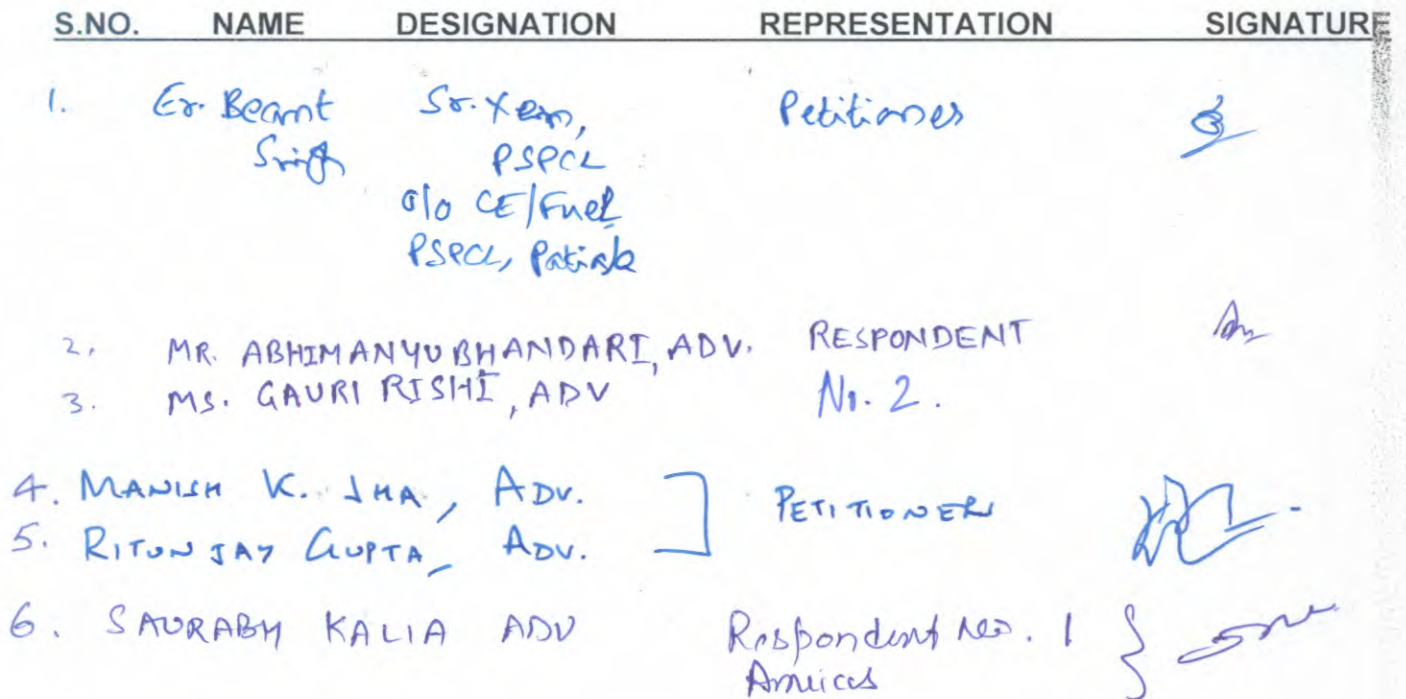 S.NO. NAME DESIGNATION REPRESENTATION SIGNATURE
1. Er. Beant Sr. Xen, Petitioner
Singh PSPCL
o/o CE/Fuel
PSPCL, Patiala
2. MR. ABHIMANYU BHANDARI, ADV. RESPONDENT
3. MS. GAURI RISHI, ADV No. 2.
4. MANISH K. JHA, ADV. PETITIONER
5. RITUNJAY GUPTA, ADV.
6. SAURABH KALIA ADV Respondent No. 1
Amicus